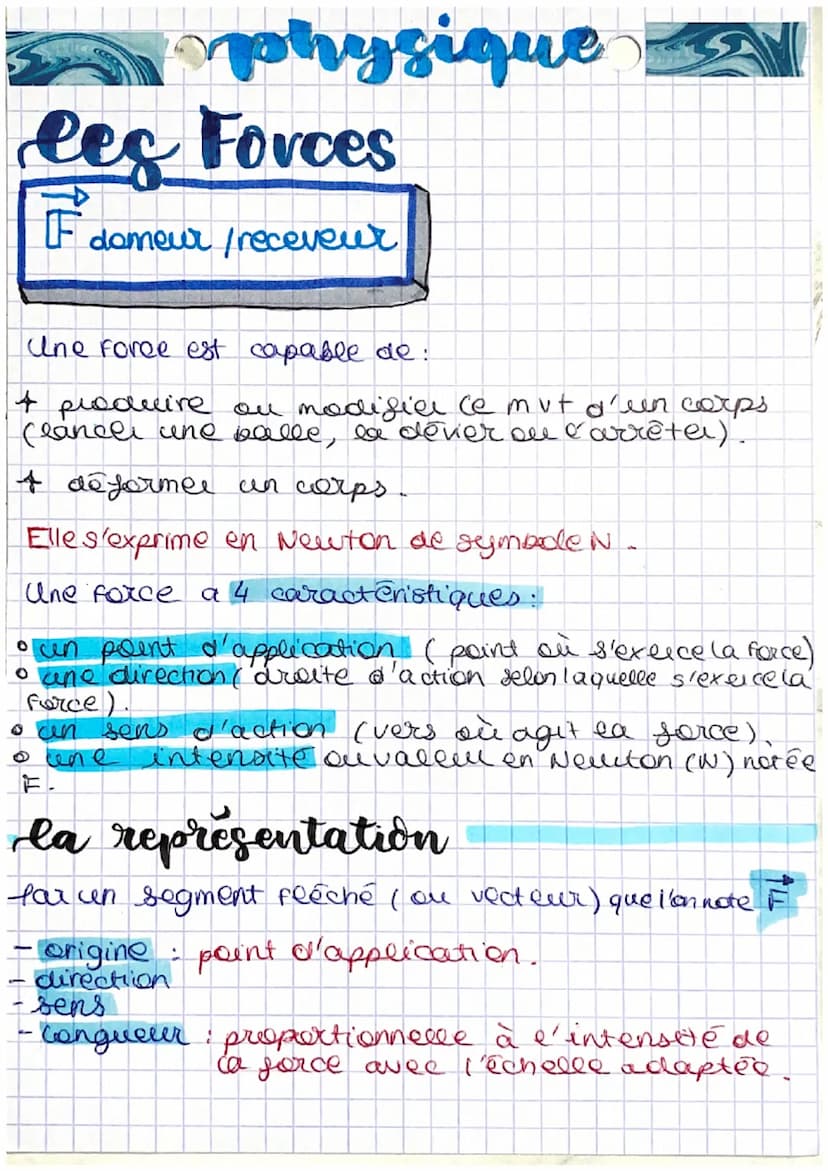 physique
les Forces
F donneur / receveur
Une force est capable de :
+ produire ou modifier le mvt d'un corps
(lancer une balle, la dévier ou l'arrêter).
+ déformer un corps.
Elle s'exprime en Newton de symbole N.
Une force a 4 caractéristiques :
o un point d'application ( point où s'exerce la force)
o une direction ( droite d'action selon laquelle s'exerce la
force).
o un sens d'action (vers où agit la force).
o une intensité ou valeur en Newton (N) notée
F.
la représentation
Par un segment fléché ( ou vecteur) que l'on note F
- origine : point d'application.
- direction
- sens
- longueur : proportionnelle à l'intensité de
la force avec l'échelle adaptée.